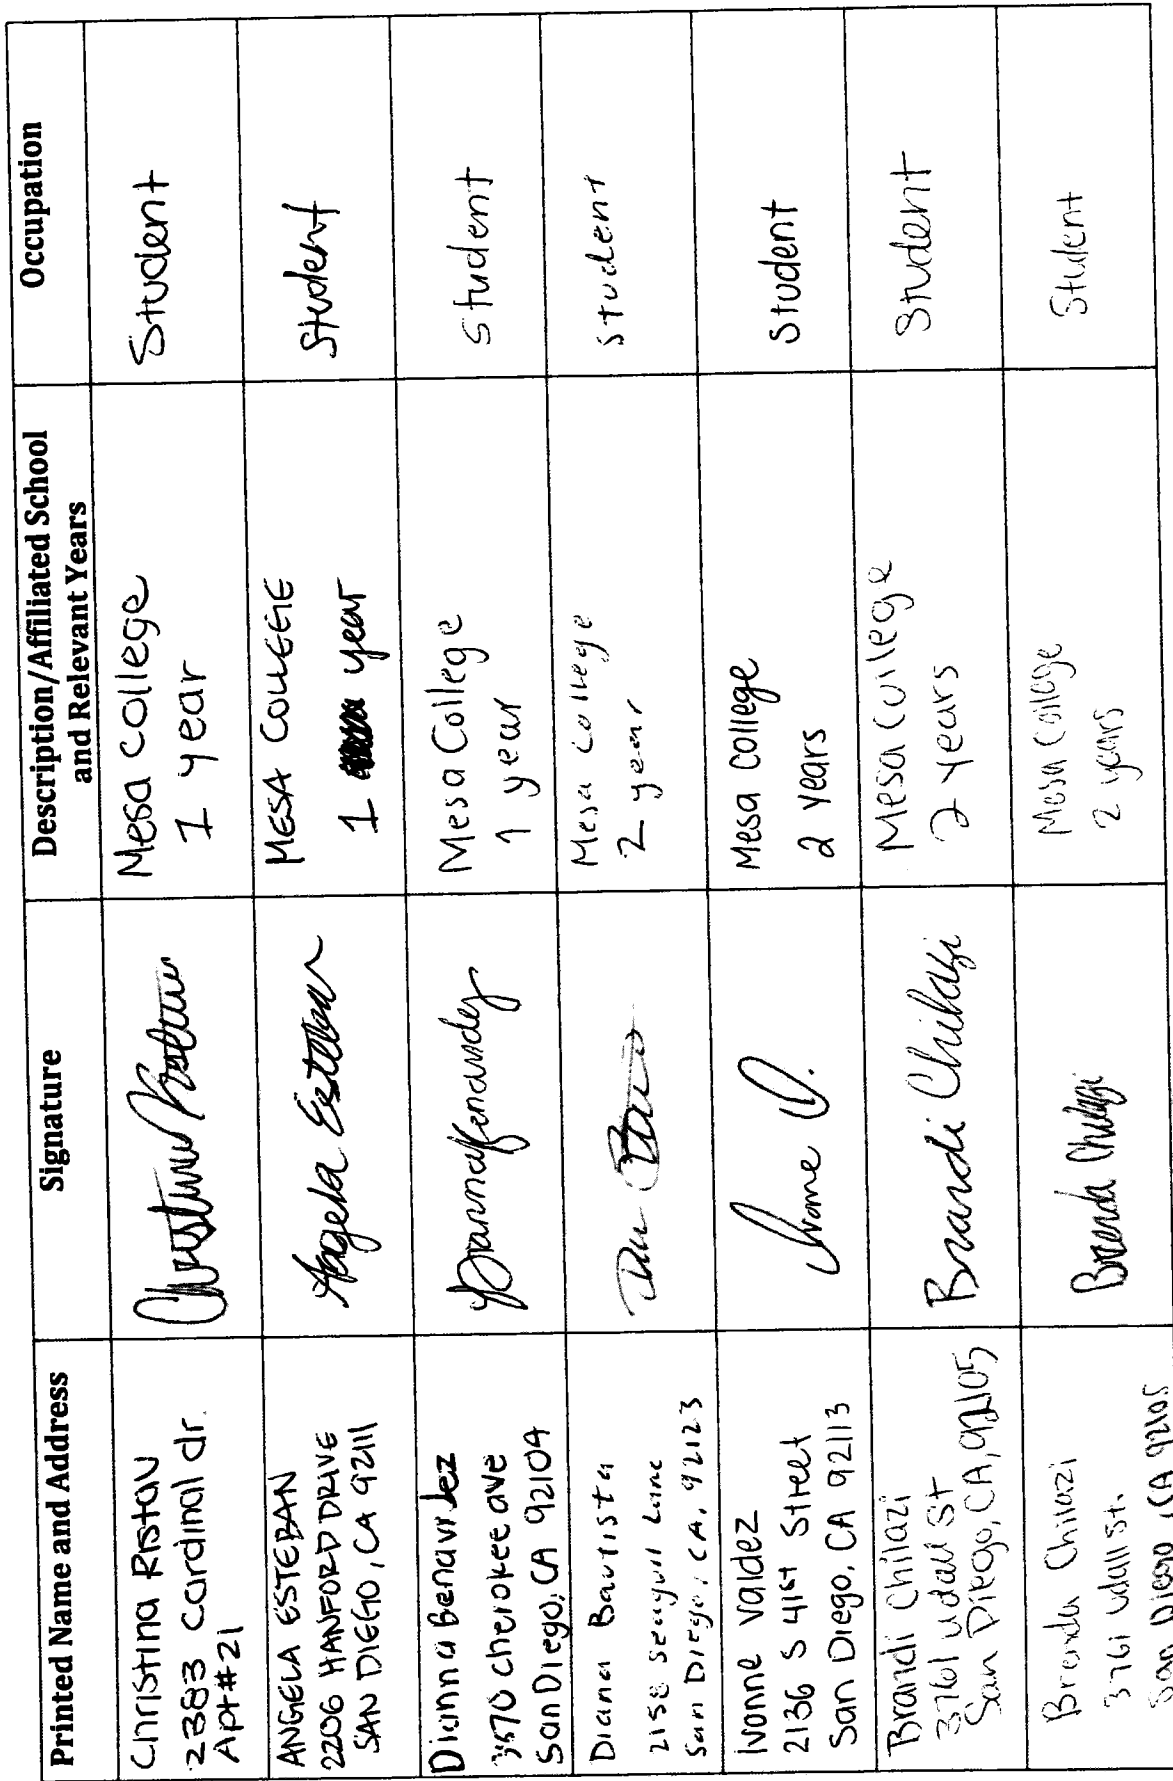 Printed Name and Address
Signature
Description/Affiliated School
and Relevant Years
Occupation
Christina Ristau
2383 Cardinal dr.
Apt #21
Mesa college
1 year
Student
ANGELA ESTEBAN
2206 HANFORD DRIVE
SAN DIEGO, CA 92111
Angela Esteban
MESA COLLEGE
1 year
Student
Dianna Benavidez
3570 cherokee ave
San Diego, CA 92104
Mesa College
1 year
student
Diana Bautista
2158 seagull Lane
San Diego, CA, 92123
Mesa college
2 year
student
Ivonne Valdez
2136 S 41st Street
San Diego, CA 92113
Ivonne V.
Mesa college
2 years
student
Brandi Chilazi
3761 udall St
San Diego, CA, 92105
Brandi Chilazi
Mesa college
2 years
Student
Brenda Chilazi
3761 udall st.
San Diego, CA 92105
Brenda Chilazi
Mesa College
2 years
Student